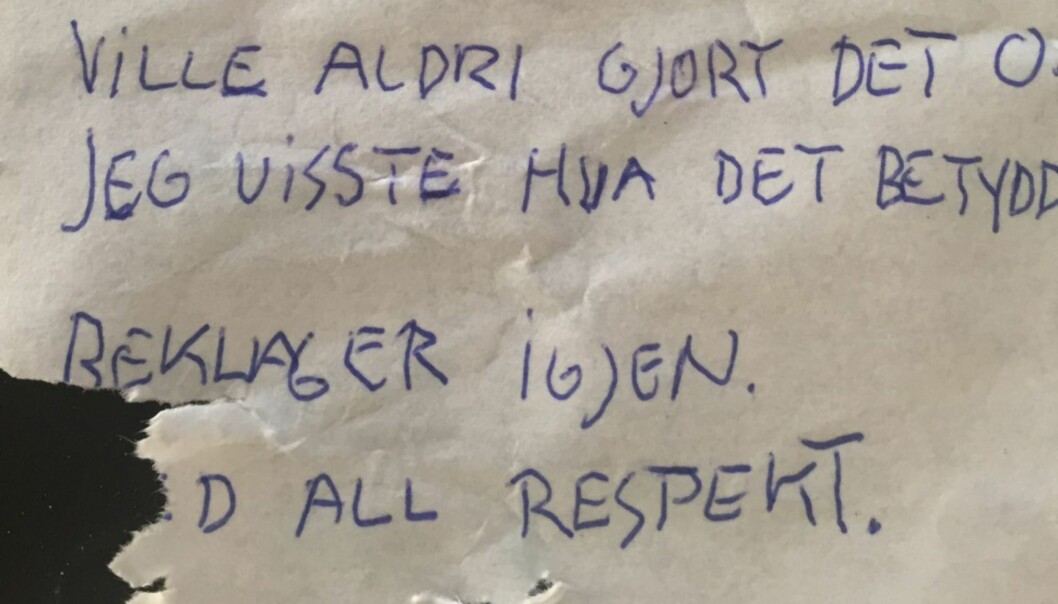 VILLE ALDRI GJORT DET
JEG VISSTE HVA DET BETYDD
BEKLAGER IGJEN.
D ALL RESPEKT.